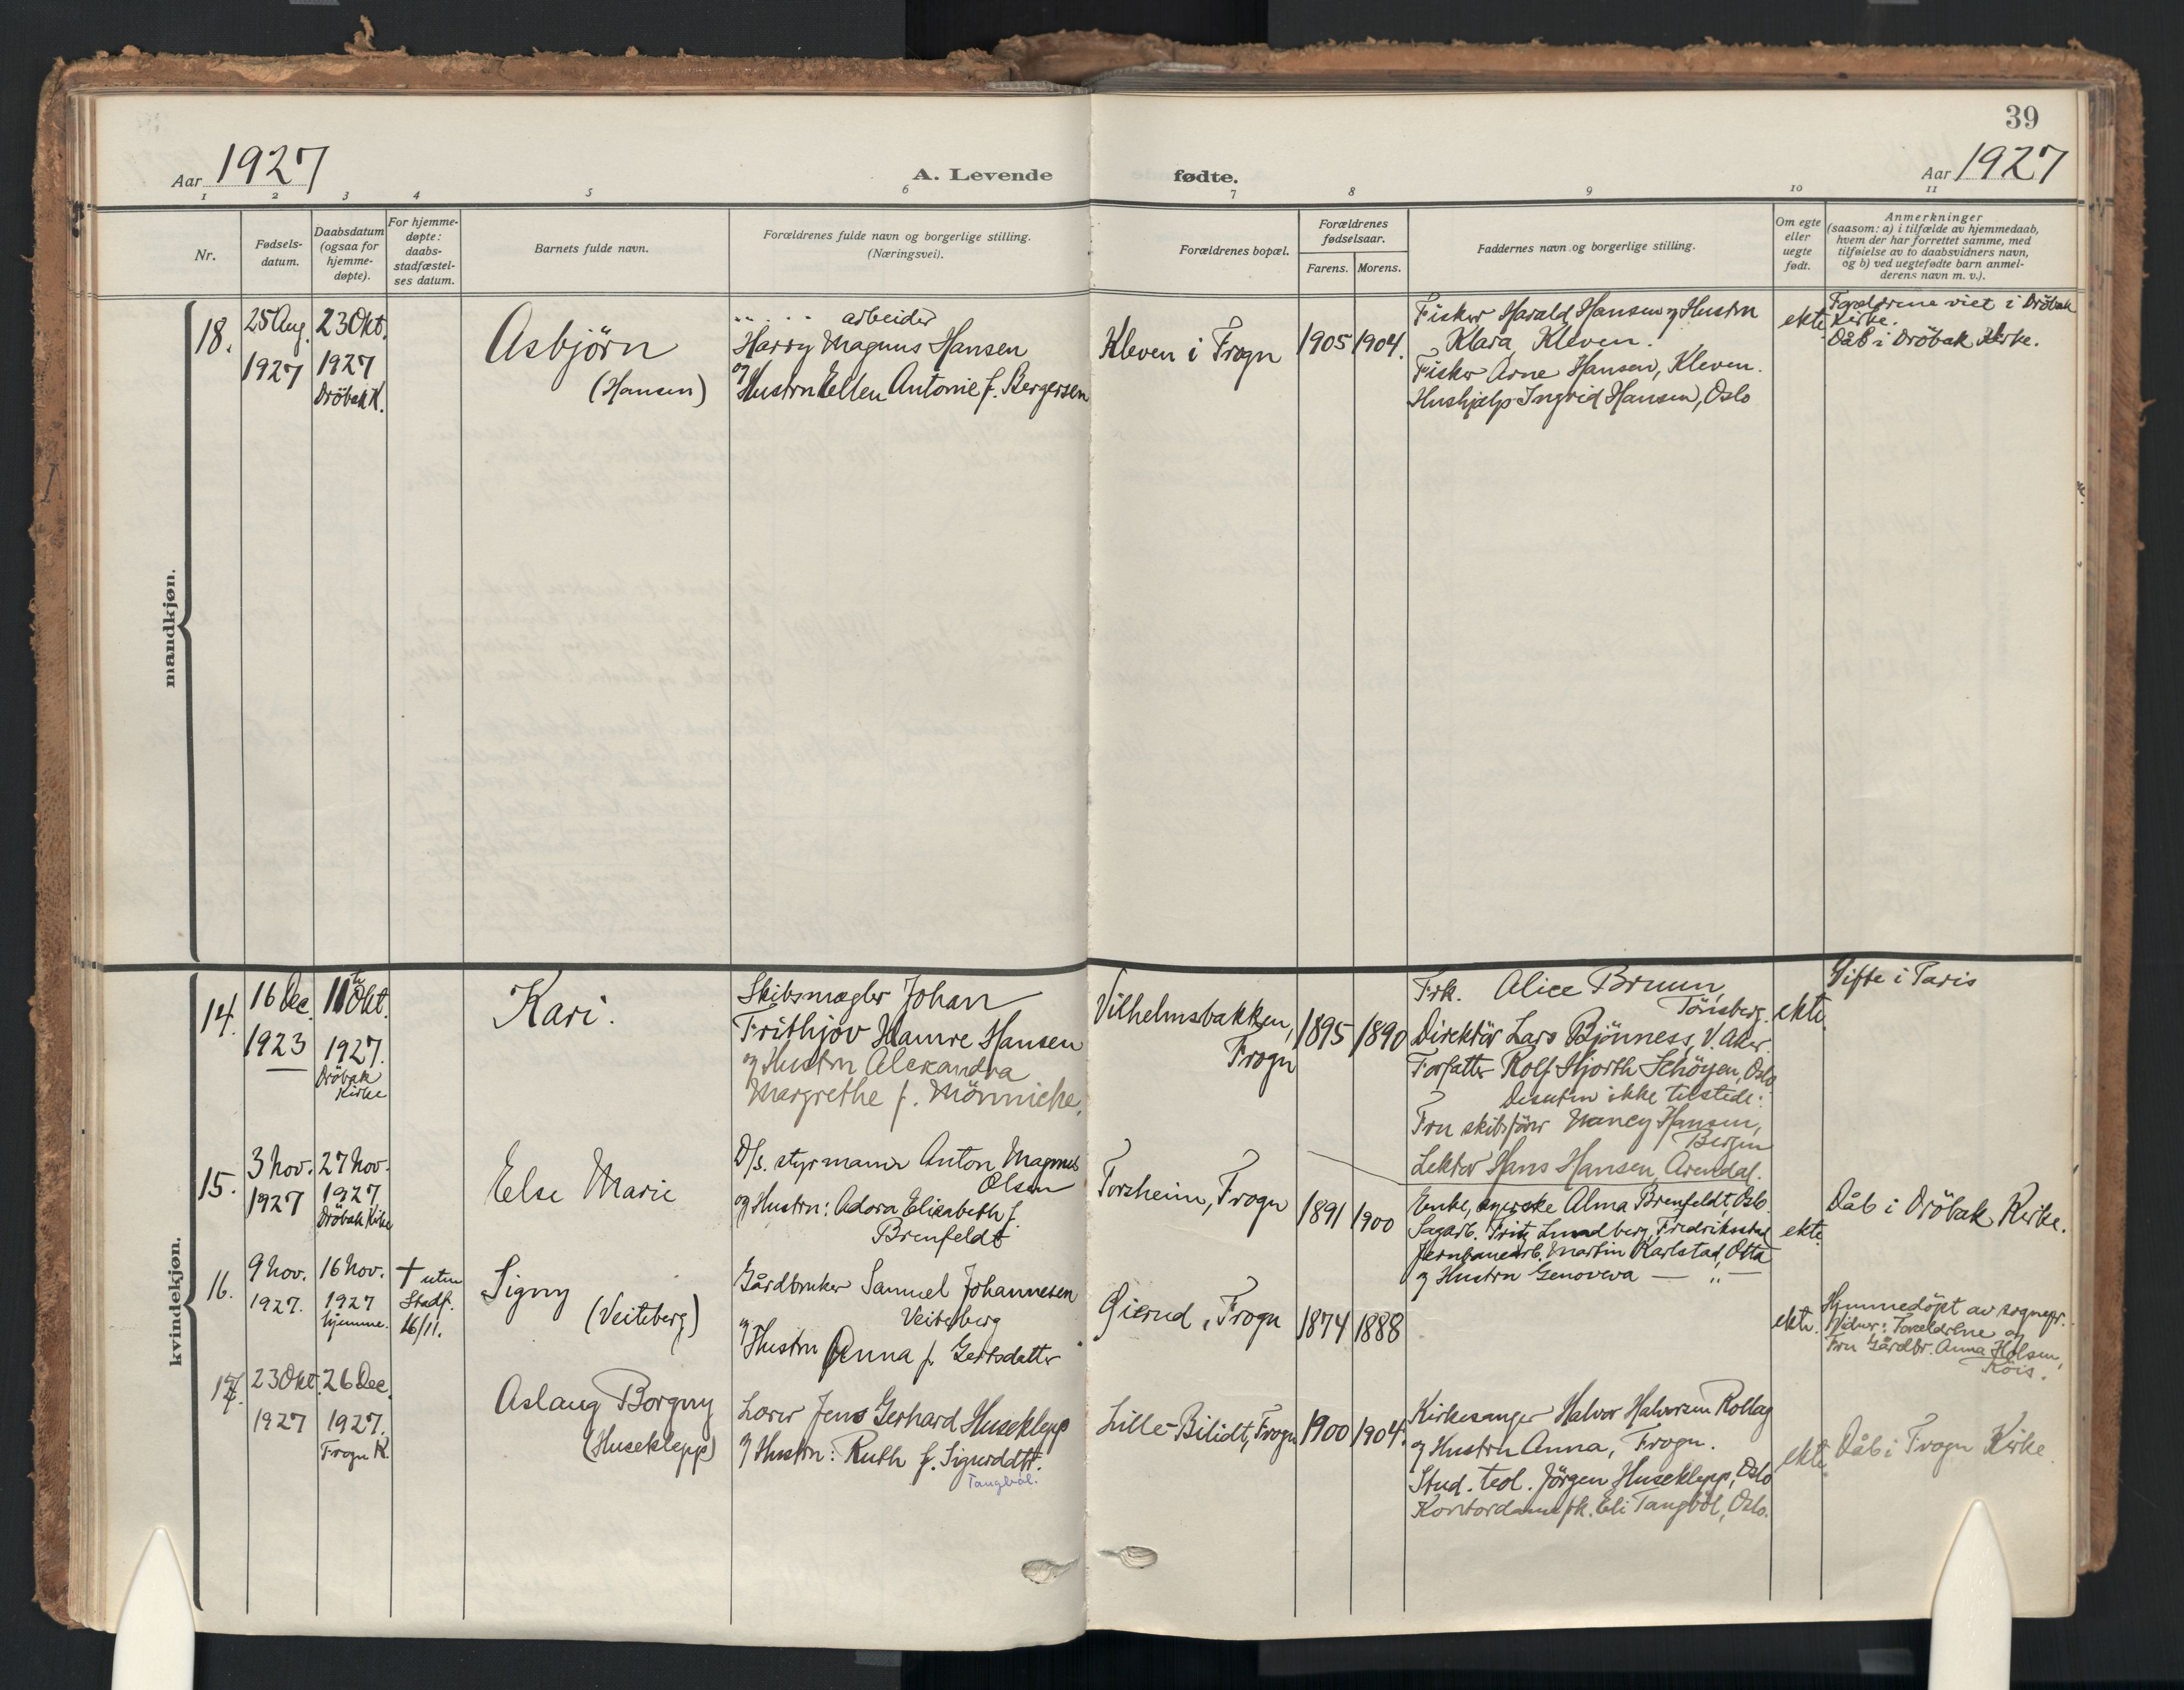 39
Aar 1927
A. Levende fødte.
Aar 1927
1 2 3 4 5 6 7 8 9 10 11
Nr.
Fødsels-
datum.
Daabsdatum
(ogsaa for
hjemme-
døpte).
For hjemme-
døpte:
daabs-
stadfæstel-
ses datum.
Barnets fulde navn.
Forældrenes fulde navn og borgerlige stilling.
(Næringsvei).
Forældrenes bopæl.
Forældrenes
fødselsaar.
Farens. Morens.
Faddernes navn og borgerlige stilling.
Om egte
eller
uegte
født.
Anmerkninger
(saasom: a) i tilfælde av hjemmedaab,
hvem der har forrettet samme, med
tilføielse av to daabsvidners navn,
og b) ved uegtefødte barn anmel-
derens navn m. v.).
mandkjøn.
18.
25 Aug.
1927
23 Okt.
1927
Dröbak K.
Asbjörn
(Hansen)
arbeider
Harry Magnus Hansen
og
Hustru Ellen Antonie f. Bergersen
Kleven i Frogn
1905
1904.
Fisker Harald Hansen og Hustru
Klara, Kleven.
Fisker Arne Hansen, Kleven.
Hushjælp Ingrid Hansen, Oslo
ekte
Forældrene viet i Dröbak
Kirke.
Dåb i Dröbak Kirke.
kvindekjøn.
14.
16 Dec.
1923
11te Okt.
1927.
Dröbak
Kirke
Kari.
Skibsmægler Johan
Frithjov Hamre Hansen
og Hustru Alexandra
Margrethe f. Mönniche.
Vilhelmsbakken,
Frogn
1895
1890
Frk. Alice Bruun,
Tönsberg.
Direktör Lars Bjönness, V. Aker.
Forfatter Rolf Hjorth Schöyen, Oslo
Desuten ikke tilstede:
Fru skibsförer Nancy Hansen,
Bergen
Lektor Hans Hansen, Arendal.
ekte.
Gifte i Paris
15.
3 Nov.
1927
27 Nov.
1927
Dröbak Kirke
Else Marie
D/s. styrmann Anton Magnus
Olsen
og Hustru: Adora Elisabeth f.
Brenfeldt
Torsheim, Frogn
1891
1900
Enke, syerske Alma Brenfeldt, Oslo.
Sagarb. Fritz Lundberg, Fredriksstad
Jernbanearb. Martin Karlstad, Otta
og Hustru Genoveva — „ —
ekte.
Dåb i Dröbak Kirke.
16.
9 Nov.
1927.
16 Nov.
1927
hjemme.
† uten
Stadf.
16/11.
Signy
(Veiteberg)
Gårdbruker Samuel Johannesen
Veiteberg
og
Hustru Anna f. Gertsdatter
Gierud, Frogn
1874
1888
ekte.
Hjemmedöpt av sognepr.
Vidner: Forældrene og
Fru Gårdbr. Anna Holsen,
Röis.
17.
23 Okt.
1927
26 Dec.
1927.
Frogn K.
Aslaug Borgny
(Huseklepp)
Lærer Jens Gerhard Huseklepp
og Hustru: Ruth f. Sigurddtt.
Tangböl.
Lille-Bilidt, Frogn
1900
1904.
Kirkesanger Halvor Halvorsen Rollag
og Hustru Anna, Frogn.
Stud. teol. Jörgen Huseklepp, Oslo
Kontordame frk. Eli Tangböl, Oslo.
ekte.
Dåb i Frogn Kirke.